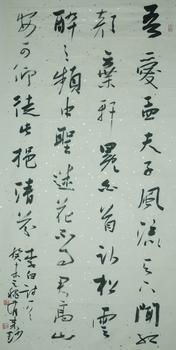 吾愛孟夫子風流天下聞紅
顏棄軒冕白首臥松雲
醉月頻中聖迷花不事君高山
安可仰徒此揖清芬
李白詩
癸未